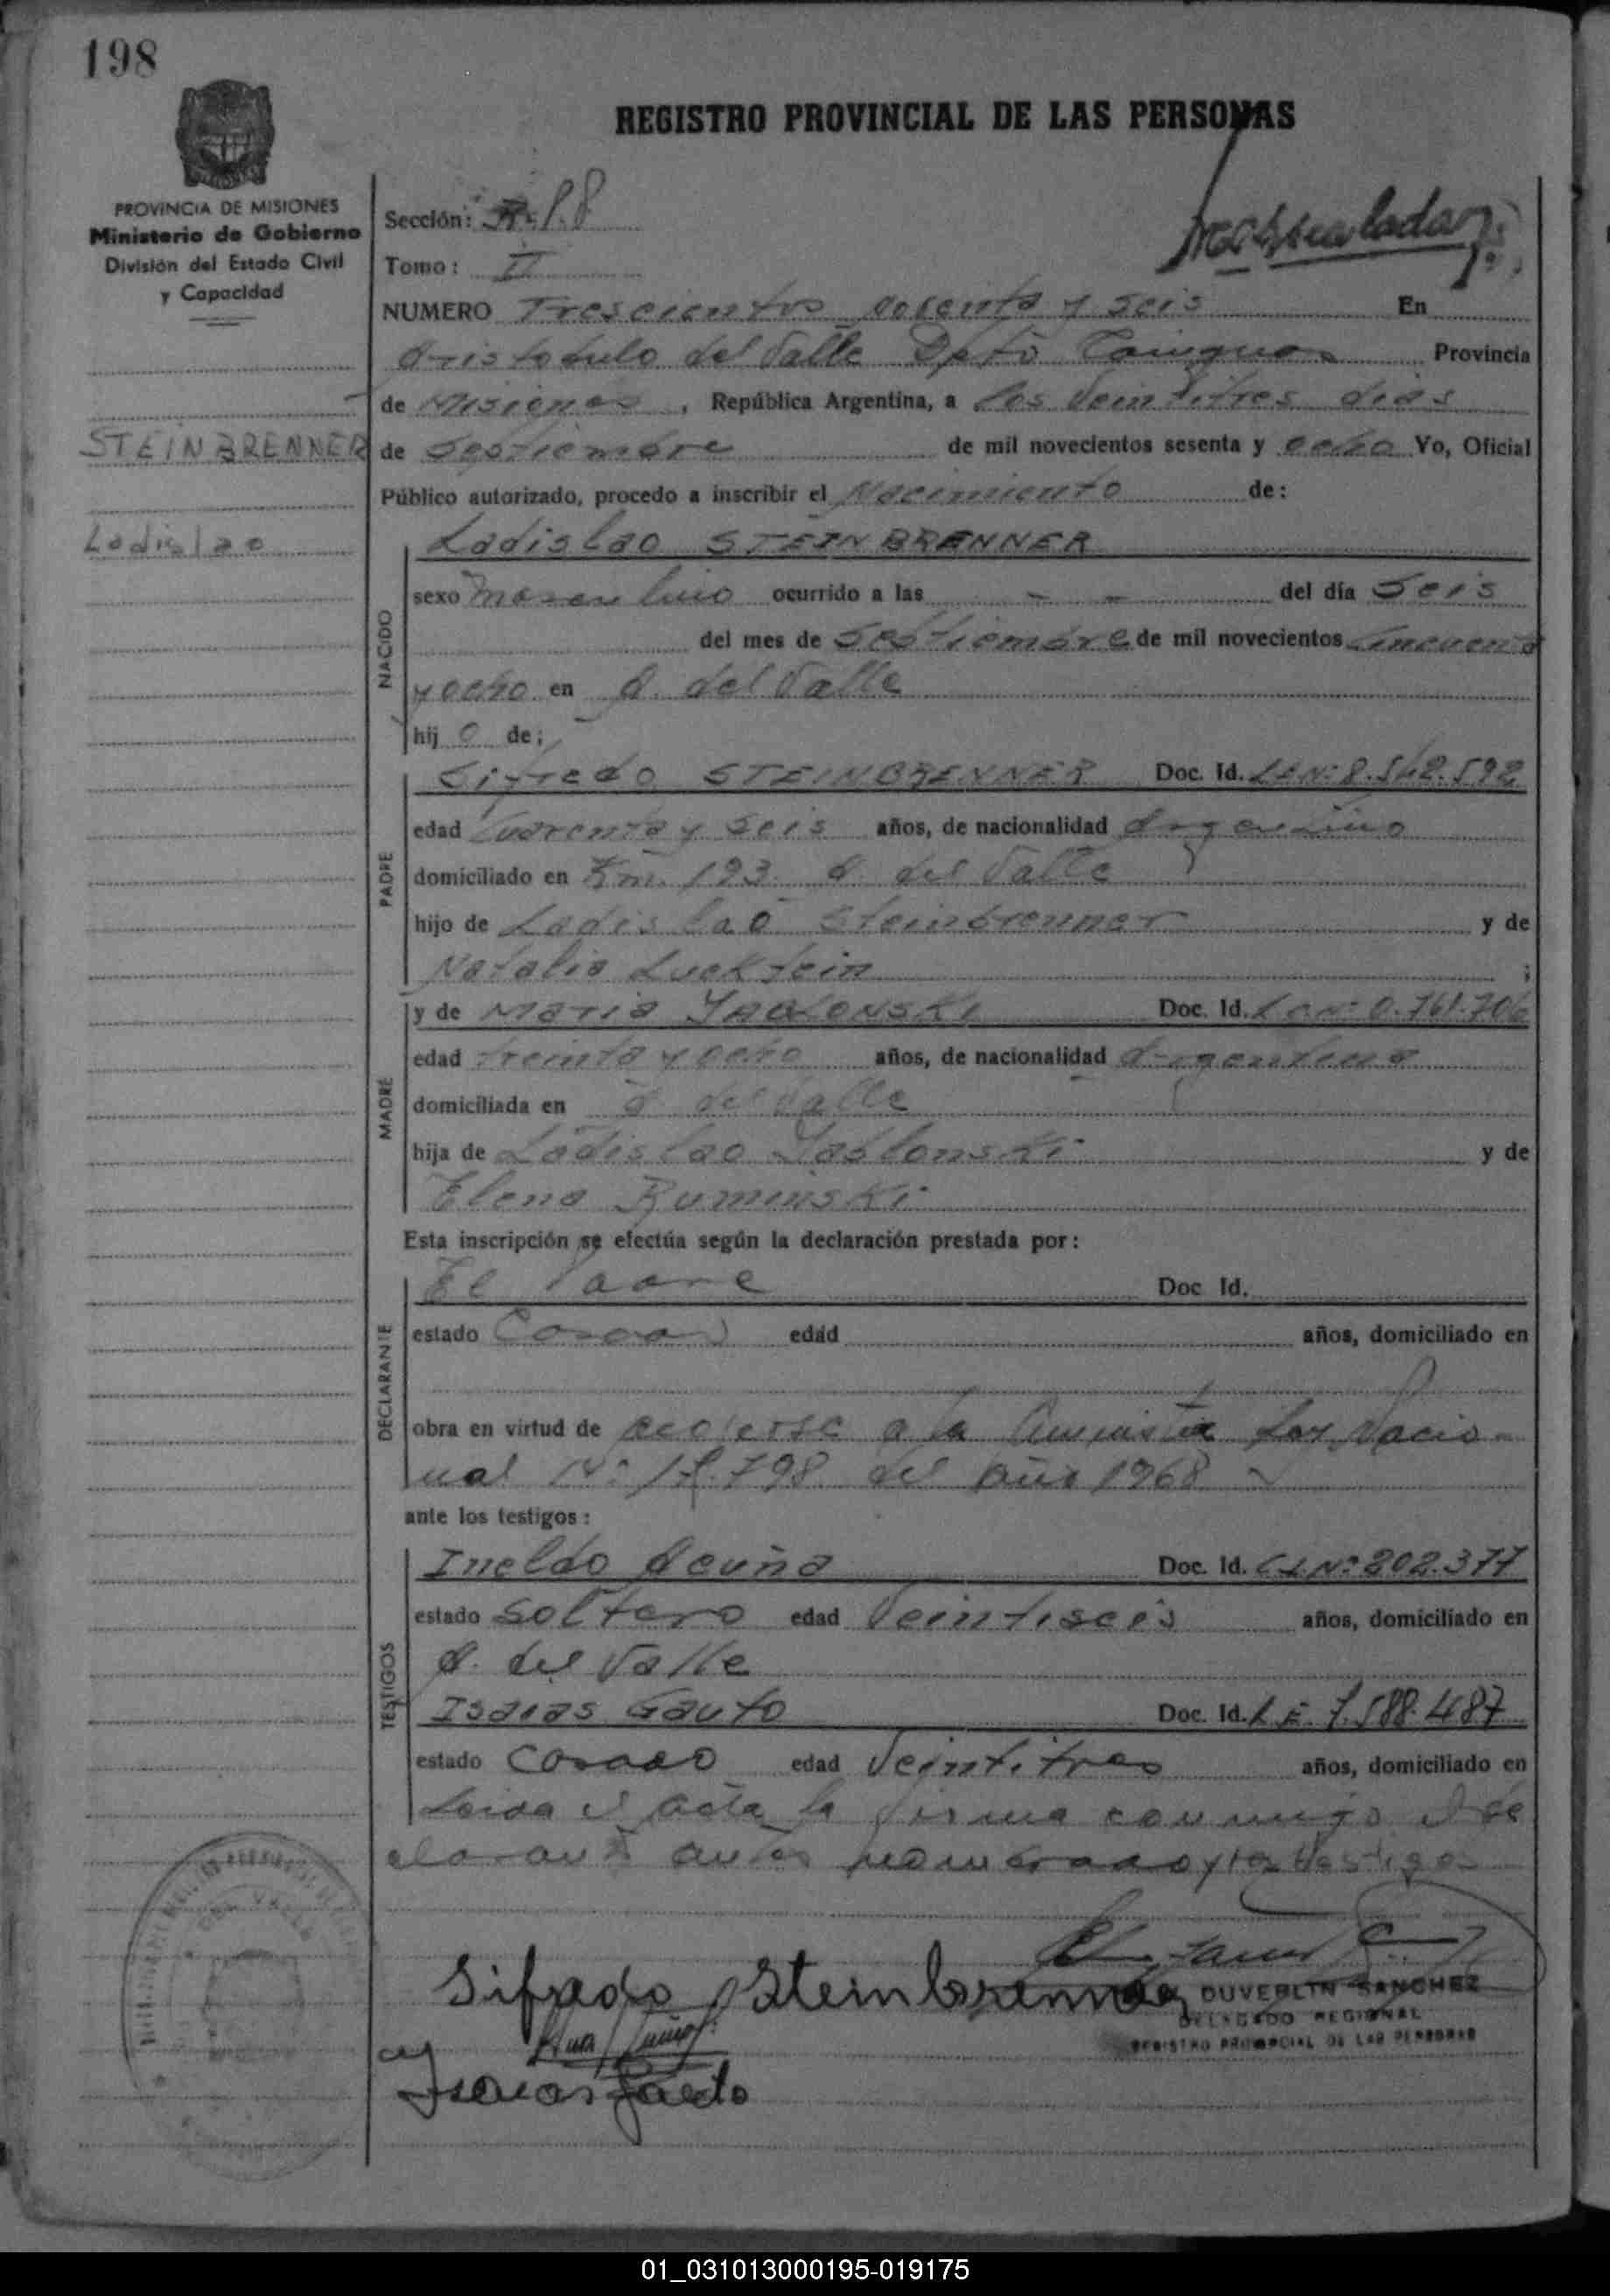 198
REGISTRO PROVINCIAL DE LAS PERSONAS
PROVINCIA DE MISIONES
Ministerio de Gobierno
División del Estado Civil
y Capacidad
Sección:
Tomo: II
NUMERO Trescientos noventa y seis En
Aristobulo del Valle Dpto Cainguas Provincia
de Misiones, República Argentina, a los veintitres dias
STEINBRENNER
de Septiembre de mil novecientos sesenta y ocho Yo, Oficial
Público autorizado, procedo a inscribir el Nacimiento de:
Ladislao
Ladislao STEINBRENNER
NACIDO
sexo masculino ocurrido a las - - del día Seis
del mes de Septiembre de mil novecientos Cincuenta
y ocho en A. del Valle
hij o de;
PADRE
Sifredo STEINBRENNER Doc. Id. L.E.Nº 8.542.592
edad Cuarenta y seis años, de nacionalidad Argentino
domiciliado en Km. 193 A. del Valle
hijo de Ladislao Steinbrenner y de
Natalia Lucktein ;
MADRE
y de Maria YABLONSKI Doc. Id. L.C.Nº 0.761.706
edad treinta y ocho años, de nacionalidad Argentina
domiciliada en A. del Valle
hija de Ladislao Yablonski y de
Elena Ruminski
Esta inscripción se efectúa según la declaración prestada por:
DECLARANTE
El Padre Doc Id.
estado Casado edad años, domiciliado en
obra en virtud de acojerse a la Amnistia Ley Nacio-
nal Nº 17.798 del año 1968
ante los testigos:
TESTIGOS
Ineldo Acuña Doc. Id. C.I.Nº 202.377
estado Soltero edad Veintiseis años, domiciliado en
A. del Valle
Isaias Gauto Doc. Id. L.E. 7.588.487
estado Casado edad Veintitres años, domiciliado en
Leida el acta la firma conmigo el de
clarante antes nombrado y los testigos
Sifredo Steinbrenner
DUVERLIN SANCHEZ
DELEGADO REGIONAL
REGISTRO PROVINCIAL DE LAS PERSONAS
Isaias Gauto
DEL VALLE
01_031013000195-019175